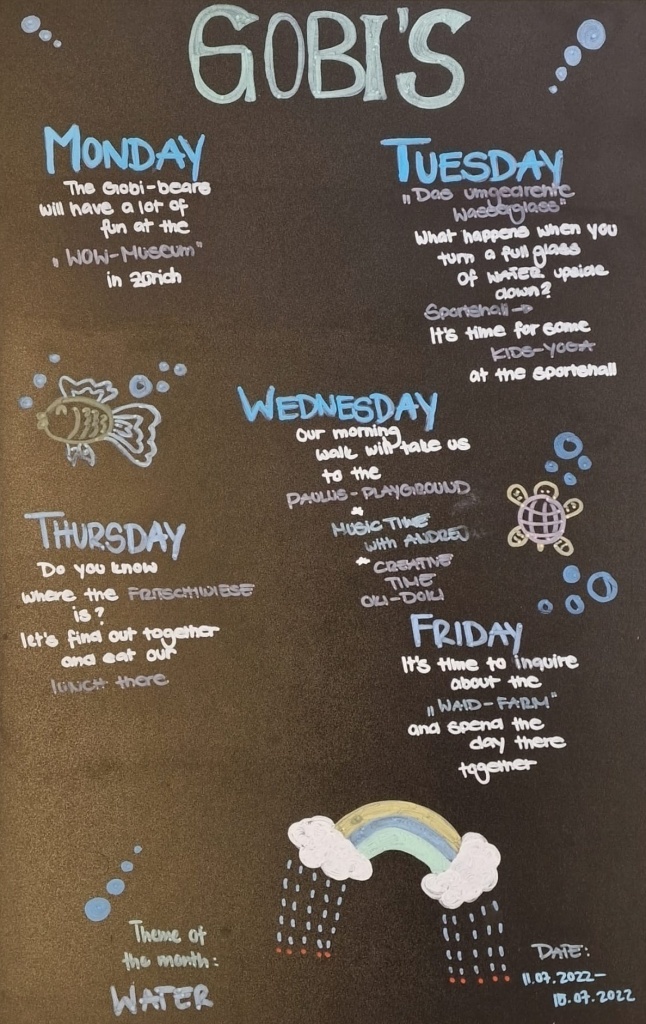 GOBI'S
MONDAY
The Gobi-bears
will have a lot of
fun at the
„WOW-MUSEUM"
in zürich
TUESDAY
„Das umgedrehte
Wasserglass"
What happens when you
turn a full glass
of WATER upside
down?
Sportshall →
It's time for some
KIDS-YOGA
at the sportshall
WEDNESDAY
Our morning
walk will take us
to the
PAULUS-PLAYGROUND
*
MUSIC TIME
with ANDREJ
* CREATIVE
TIME
OKI-DOKI
THURSDAY
Do you know
where the FRITSCHIWIESE
is?
let's find out together
and eat our
lunch there
FRIDAY
It's time to inquire
about the
„WAID-FARM"
and spend the
day there
together
Theme of
the month:
WATER
DATE:
11.07.2022-
18.07.2022